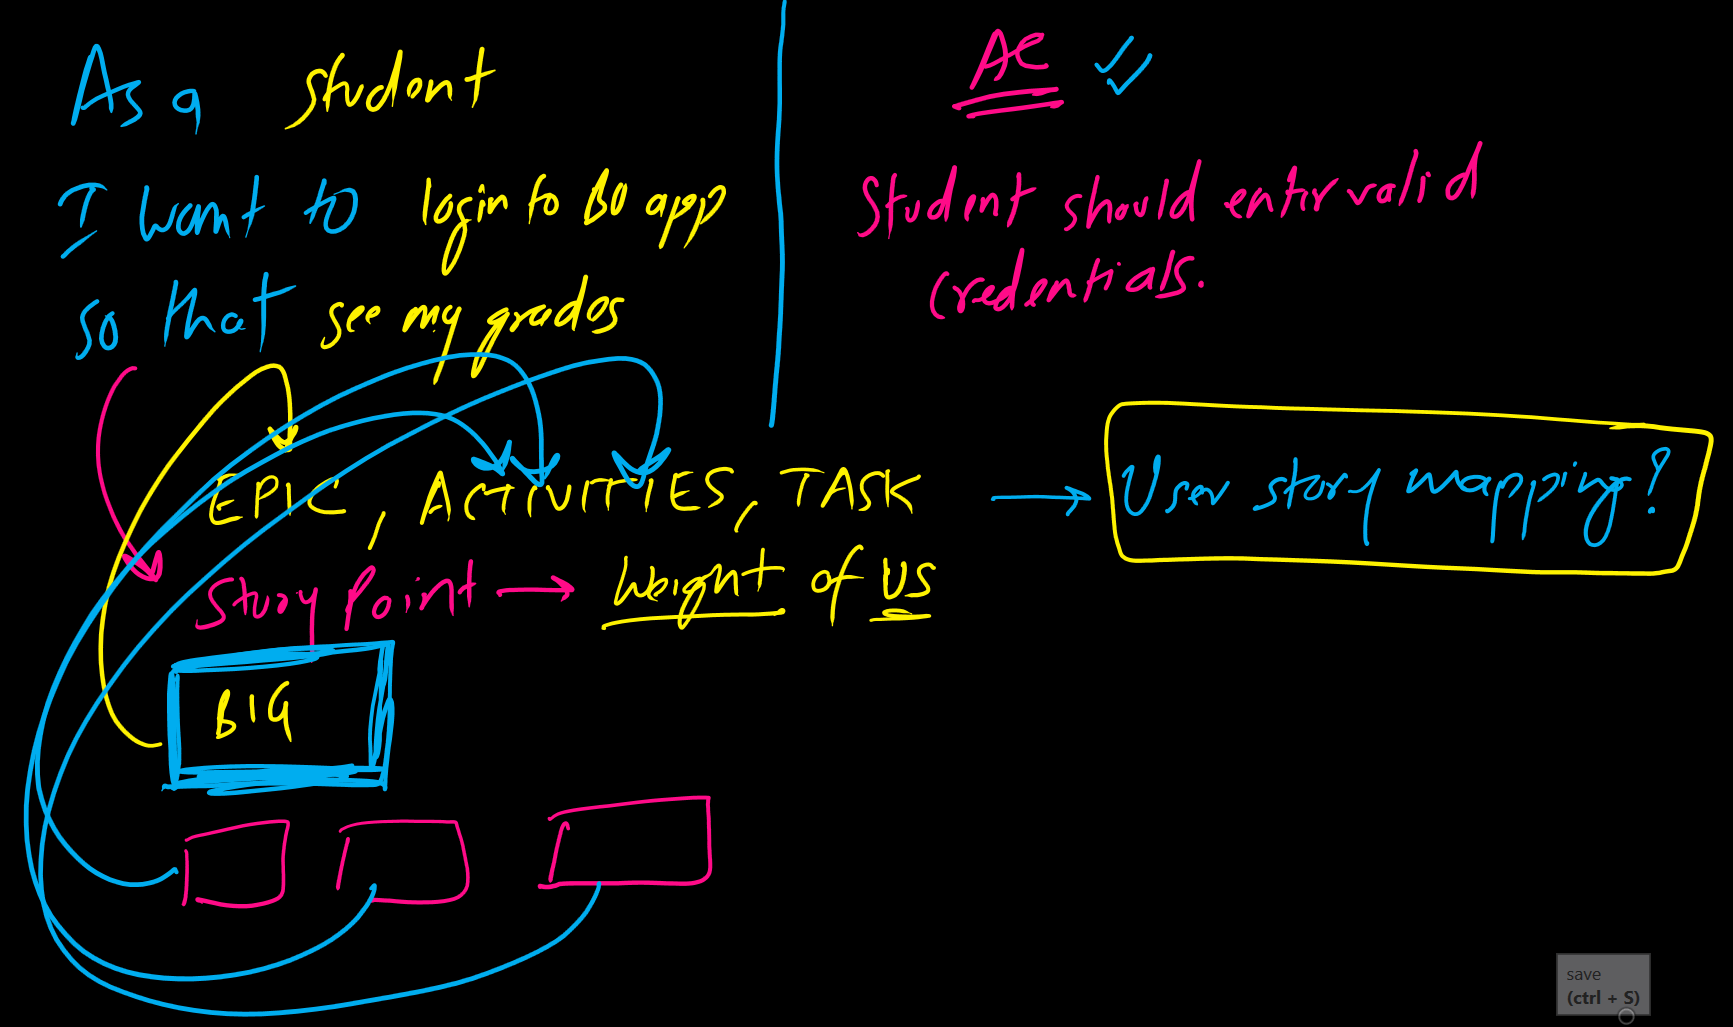 As a student
I want to login to BO app
so that see my grades
AC
Student should enter valid
credentials.
EPIC, ACTIVITIES, TASK
User story mapping?
Story Point → Weight of US
BIG
save
(ctrl + S)